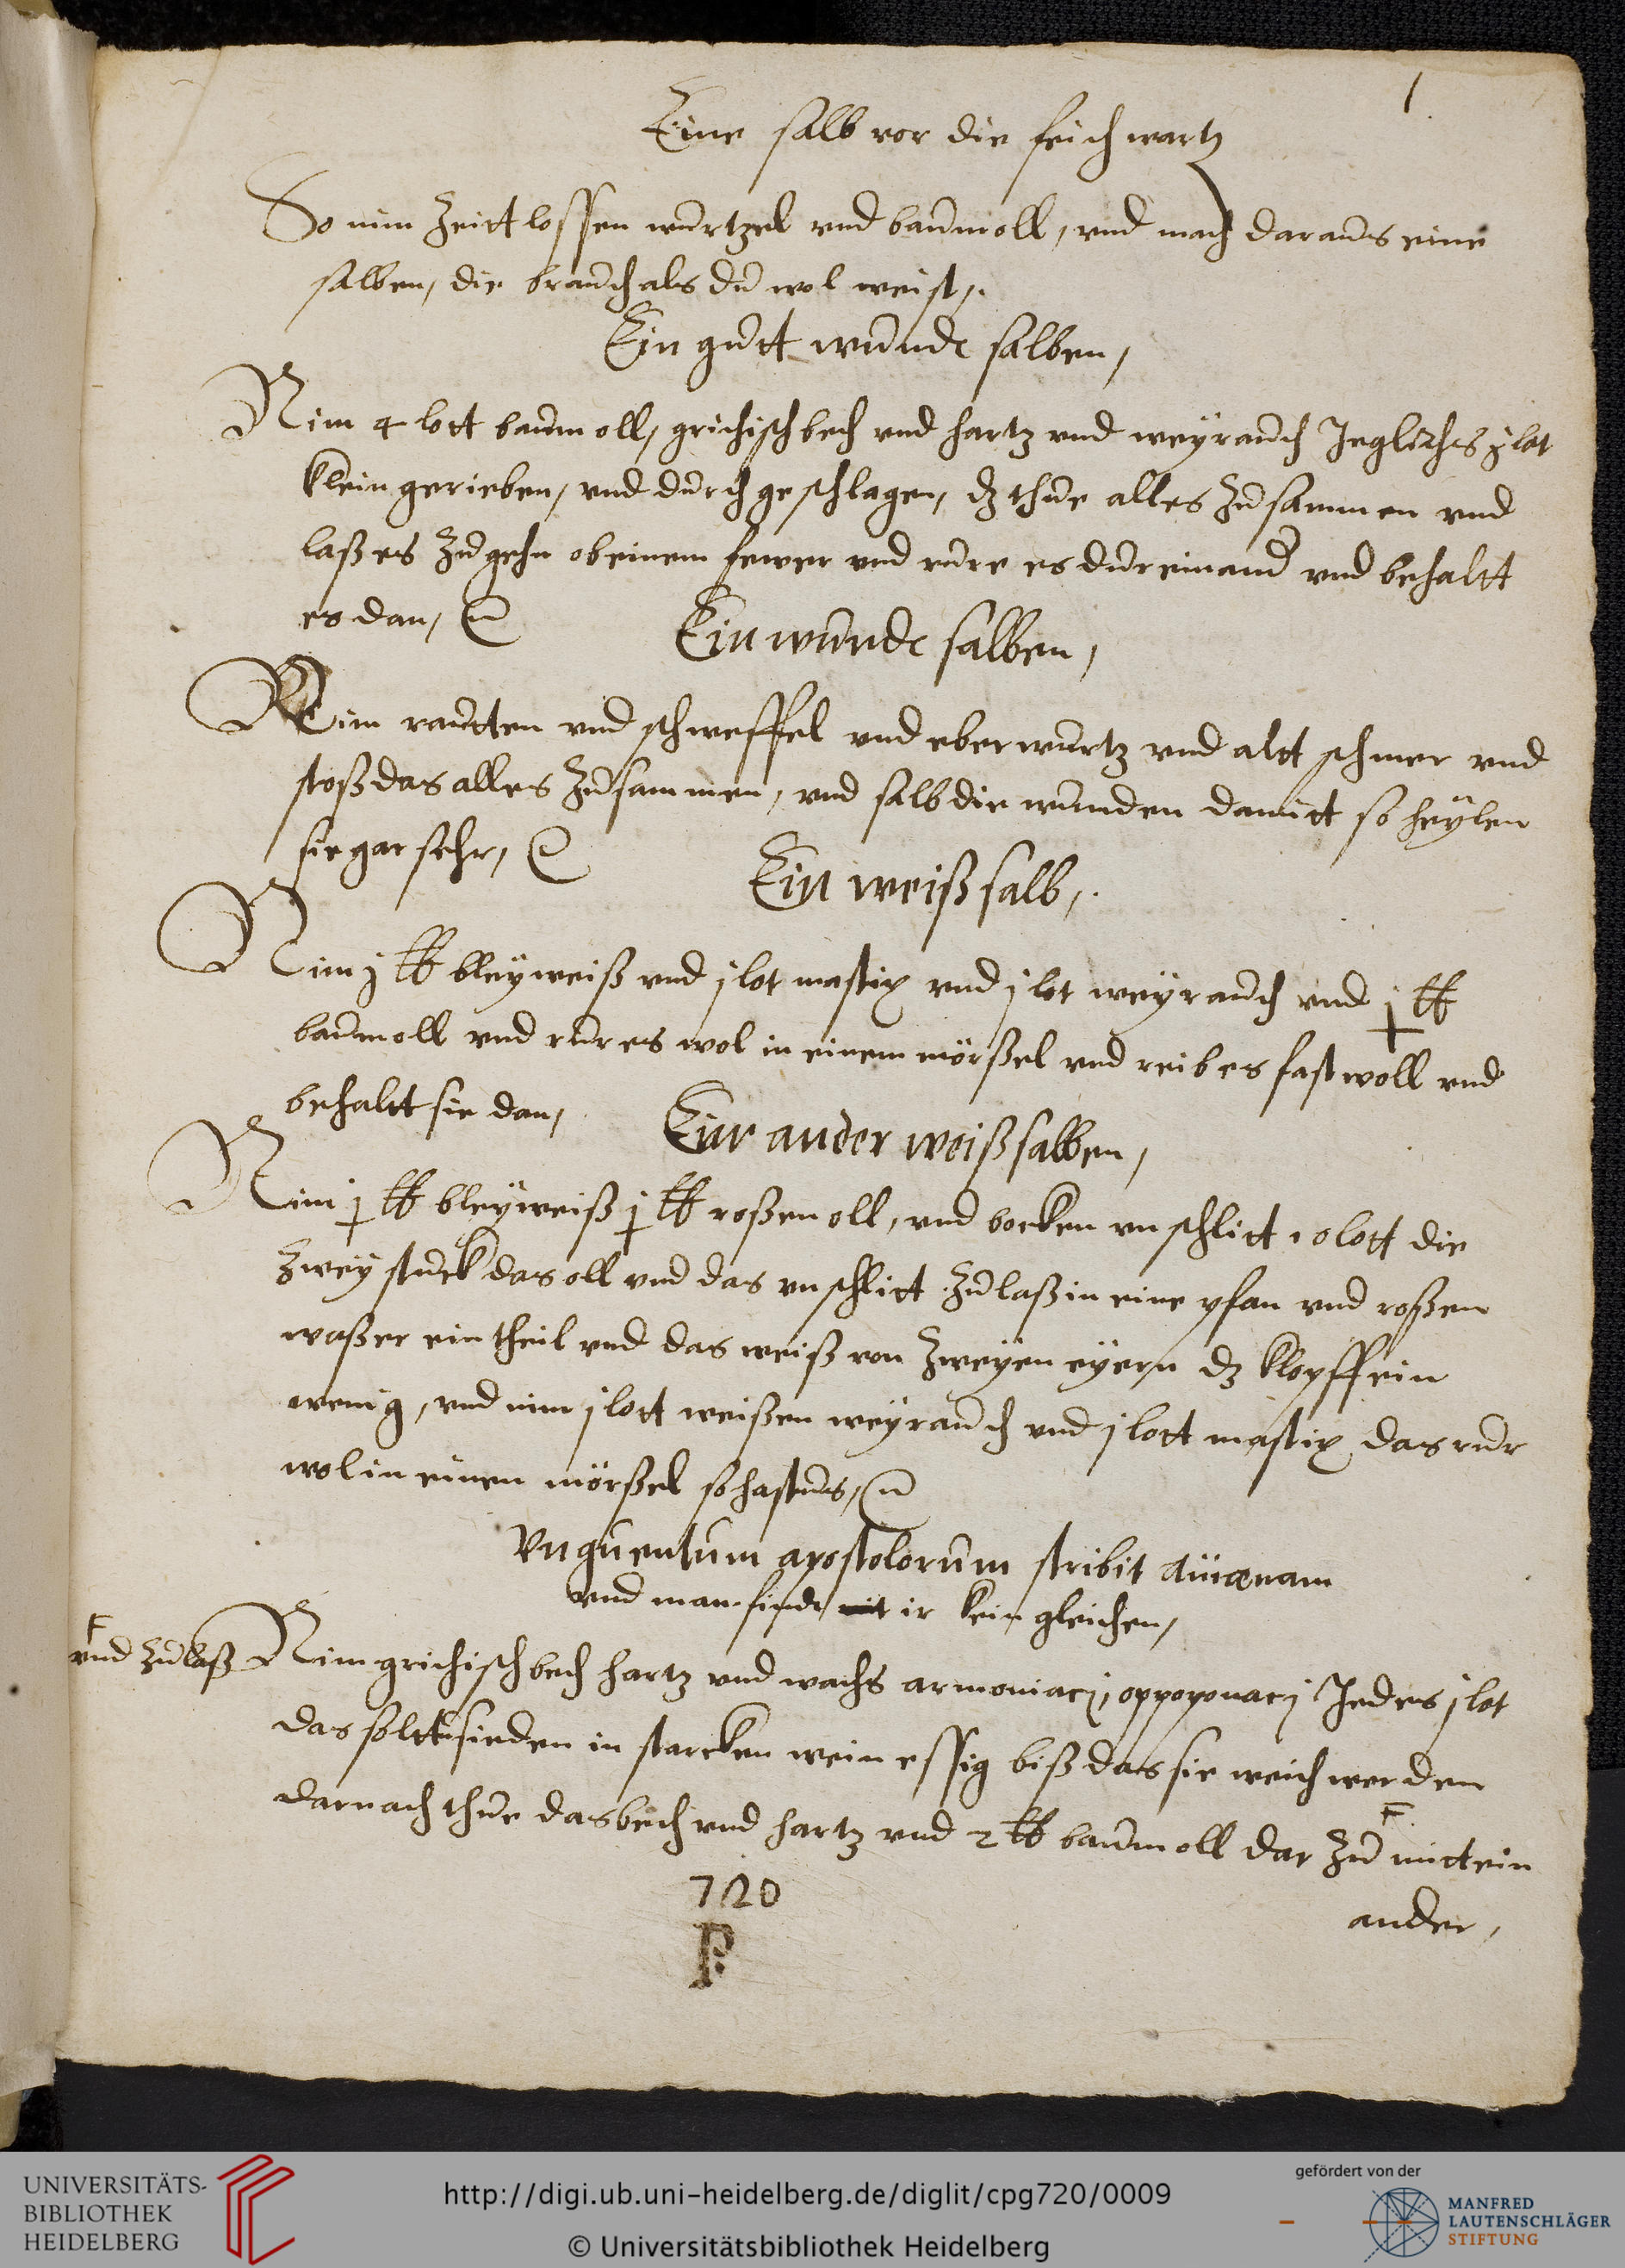 1
Eine salb vor die feichwartz
So nim Zeittlossen wurtzel vnd baumoll, vnd mach daraus eine
salben, die brauch als du wol weist,.
Ein gutt wunde salben,
Nim 4 lott baumoll, grichisch bech vnd hartz vnd weyrauch Jegliches lot
klein gerieben, vnd durch geschlagen, dz thue alles Zusammen vnd
laß es Zugehn ob einem fewer vnd rure es dureinand vnd behaltt
es dan,
Ein wunde salben,
Nim rautten vnd schweffel vnd eberwurtz vnd altt schmer vnd
stoß das alles Zusammen, vnd salb die wunden damitt so heylen
sie gar sehr,
Ein weiß salb,.
Nim j ℔ bleyweiß vnd j lot mastix vnd j lot weyrauch vnd j ℔
baumoll vnd rur es wol in einem mörßel vnd reib es fast woll vnd
behaltt sie dan,
Eine ander weiß salben,
Nim j ℔ bleyweiß j ℔ roßenoll, vnd bocken vnschlitt 10 lott die
Zwey stuck das oll vnd das vnschlitt Zulaß in eine pfan vnd roßen
waßer ein theil vnd das weiß von Zweyen eyern dz klopff ein
wenig, vnd nim j lott weißen weyrauch vnd j lott mastix das rur
wol in einen mörßel so hastus,
Vnguentum apostolorum stribit Auicenam
vnd man finde nit ir kein gleichen,
vnd Zulaß
Nim grichisch bech hartz vnd wachs armoniacj, oppoponacj Jedes j lot
das soltt sieden in starcken wein essig biß das sie weich werden
darnach thue das bech vnd hartz vnd 2 ℔ baumoll dar Zu mitt ein
ander,
720
P.
UNIVERSITÄTS-
BIBLIOTHEK
HEIDELBERG
http://digi.ub.uni-heidelberg.de/diglit/cpg720/0009
© Universitätsbibliothek Heidelberg
gefördert von der
MANFRED
LAUTENSCHLÄGER
STIFTUNG